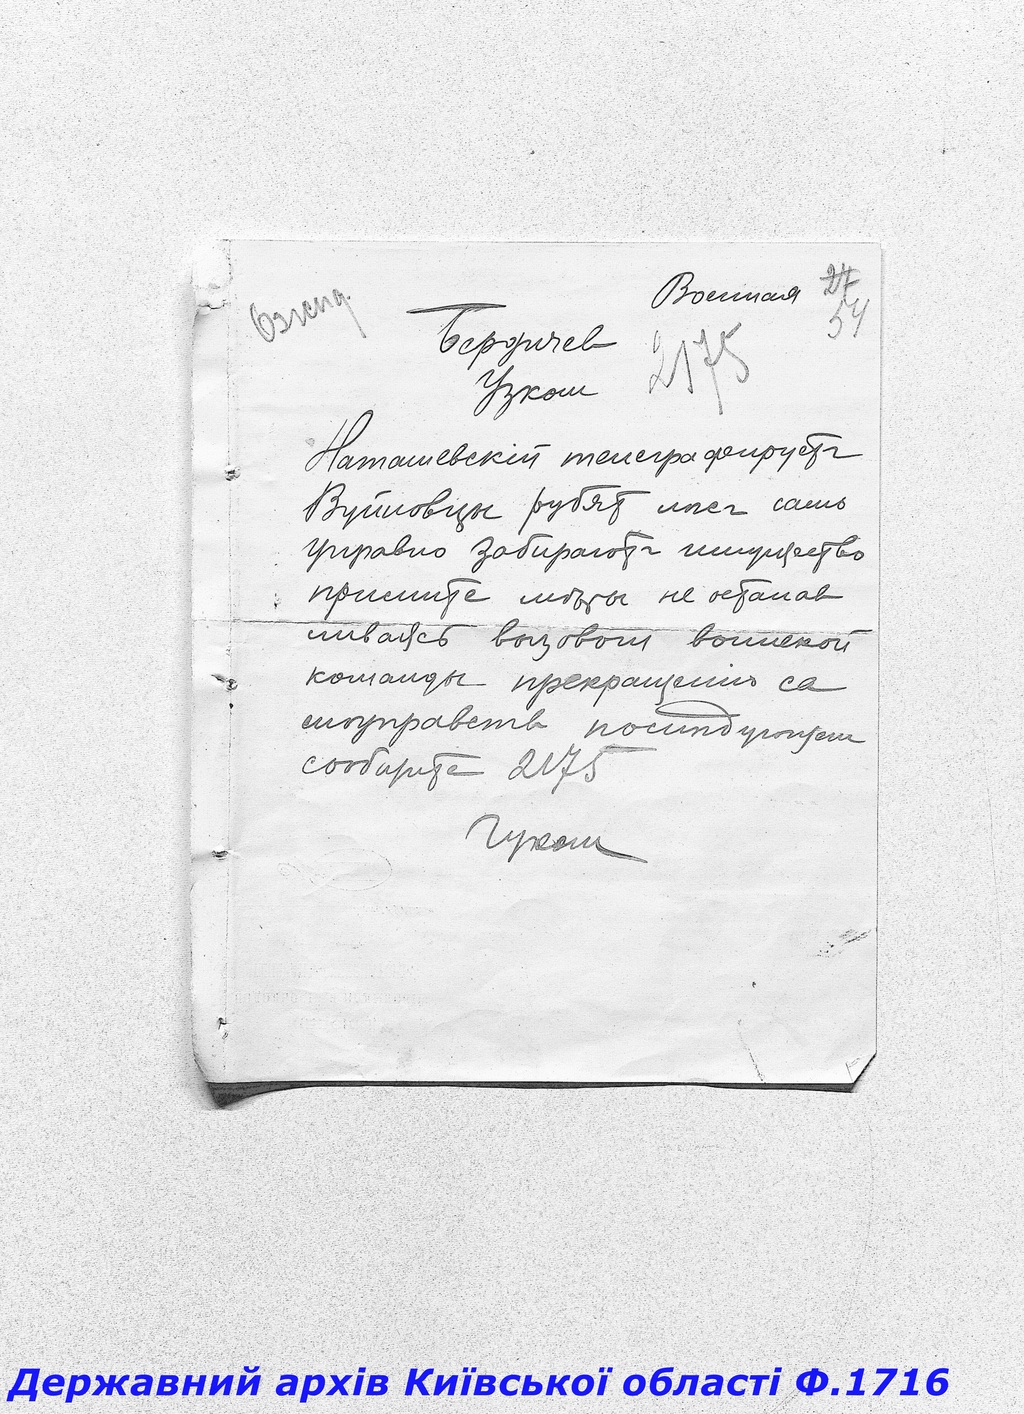 Военная 27
54
Бердичев 2175
Узком
Наташевскій телеграфирует
Вуйновцы рубят лес само
управно забирают имущество
примите меры не останав
ливаясь вызовом воинской
команды прекращению са
моуправств последующем
сообщите 2175
Гуком
Державний архів Київської області Ф.1716